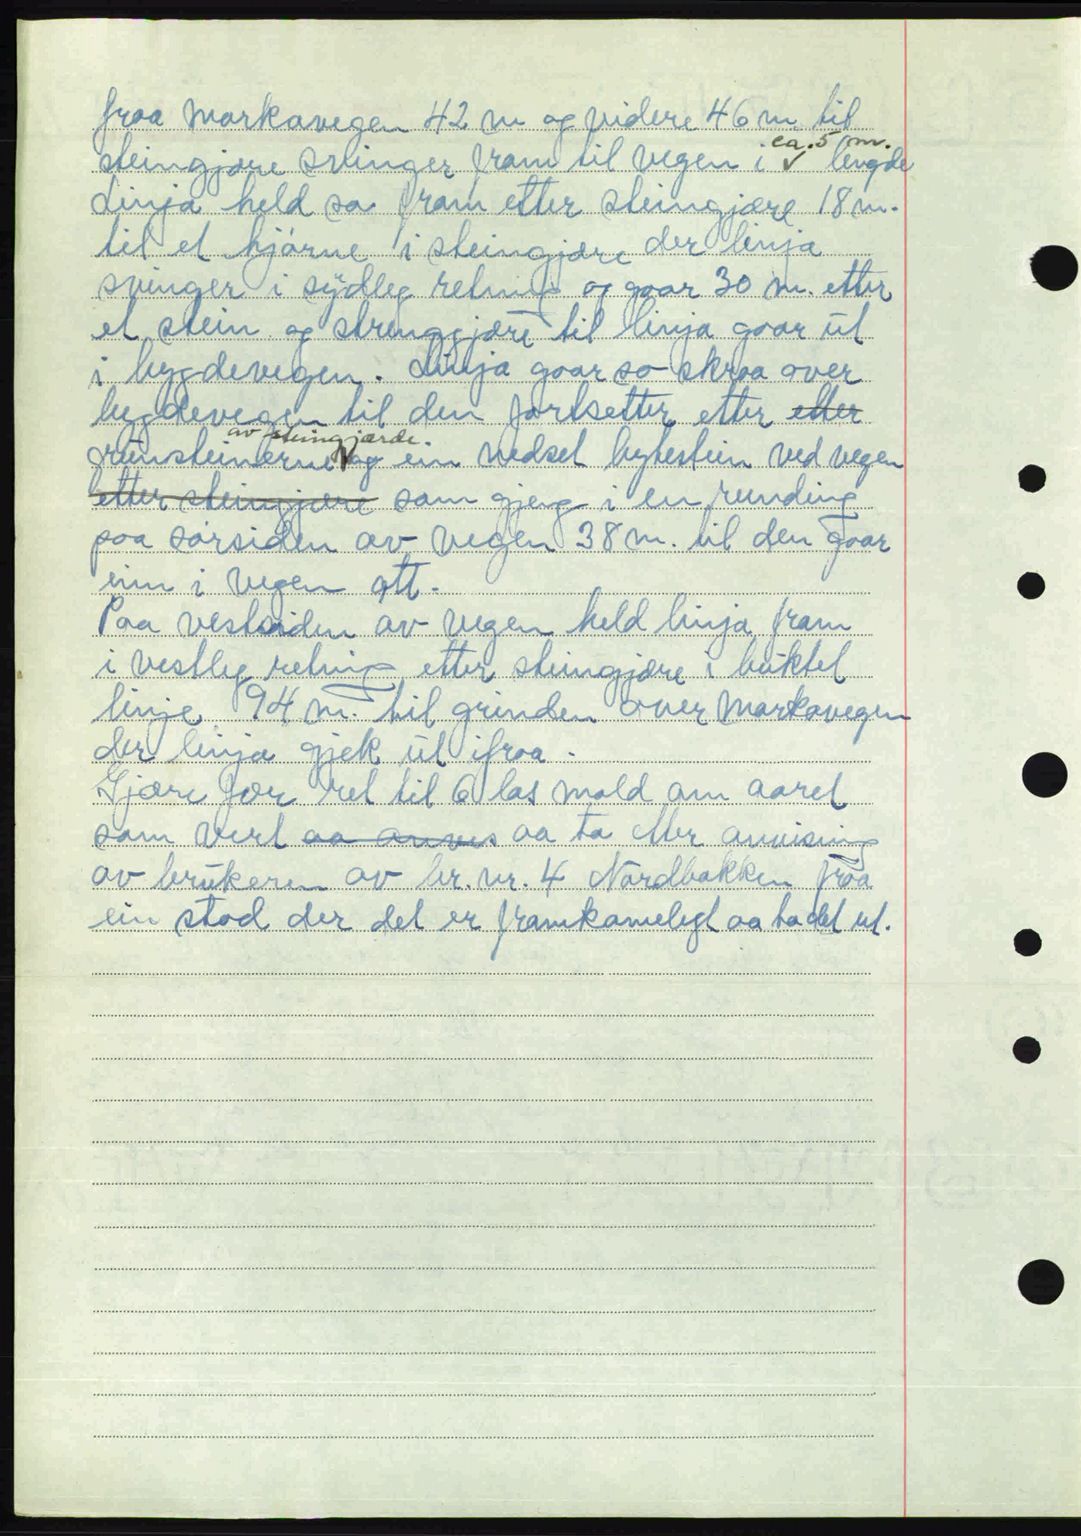 fraa Markavegen 42 m og videre 46 m til
steingjære svinger fram til vegen i ca. 5 m. lengde
Linja held so fram etter steingjære 18 m.
til et hjørne i steingjære der linja
svinger i sydleg retning og gaar 30 m. etter
et stein og strenggjære til linja gaar ut
i bygdevegen. Linja gaar so skraa over
bygdevegen til den fortsetter etter etter
grunsteinerne av steingjærde og ein nedset bytestein ved vegen
etter steingjære som gjeng i en runding
paa sørsiden av vegen 38 m. til den gaar
inn i vegen att.
Paa vestsiden av vegen held linja fram
i vestleg retning etter steingjære i buktet
linje 94 m. til grinden over Markavegen
der linja gjek ut ifraa.
Gjære for ret til 6 las mold om aaret
som vert aa anvis aa ta etter anvising
av brukeren av br. nr. 4 Nordbakken fraa
ein stad der det er framkomeligt aa ta det ut.